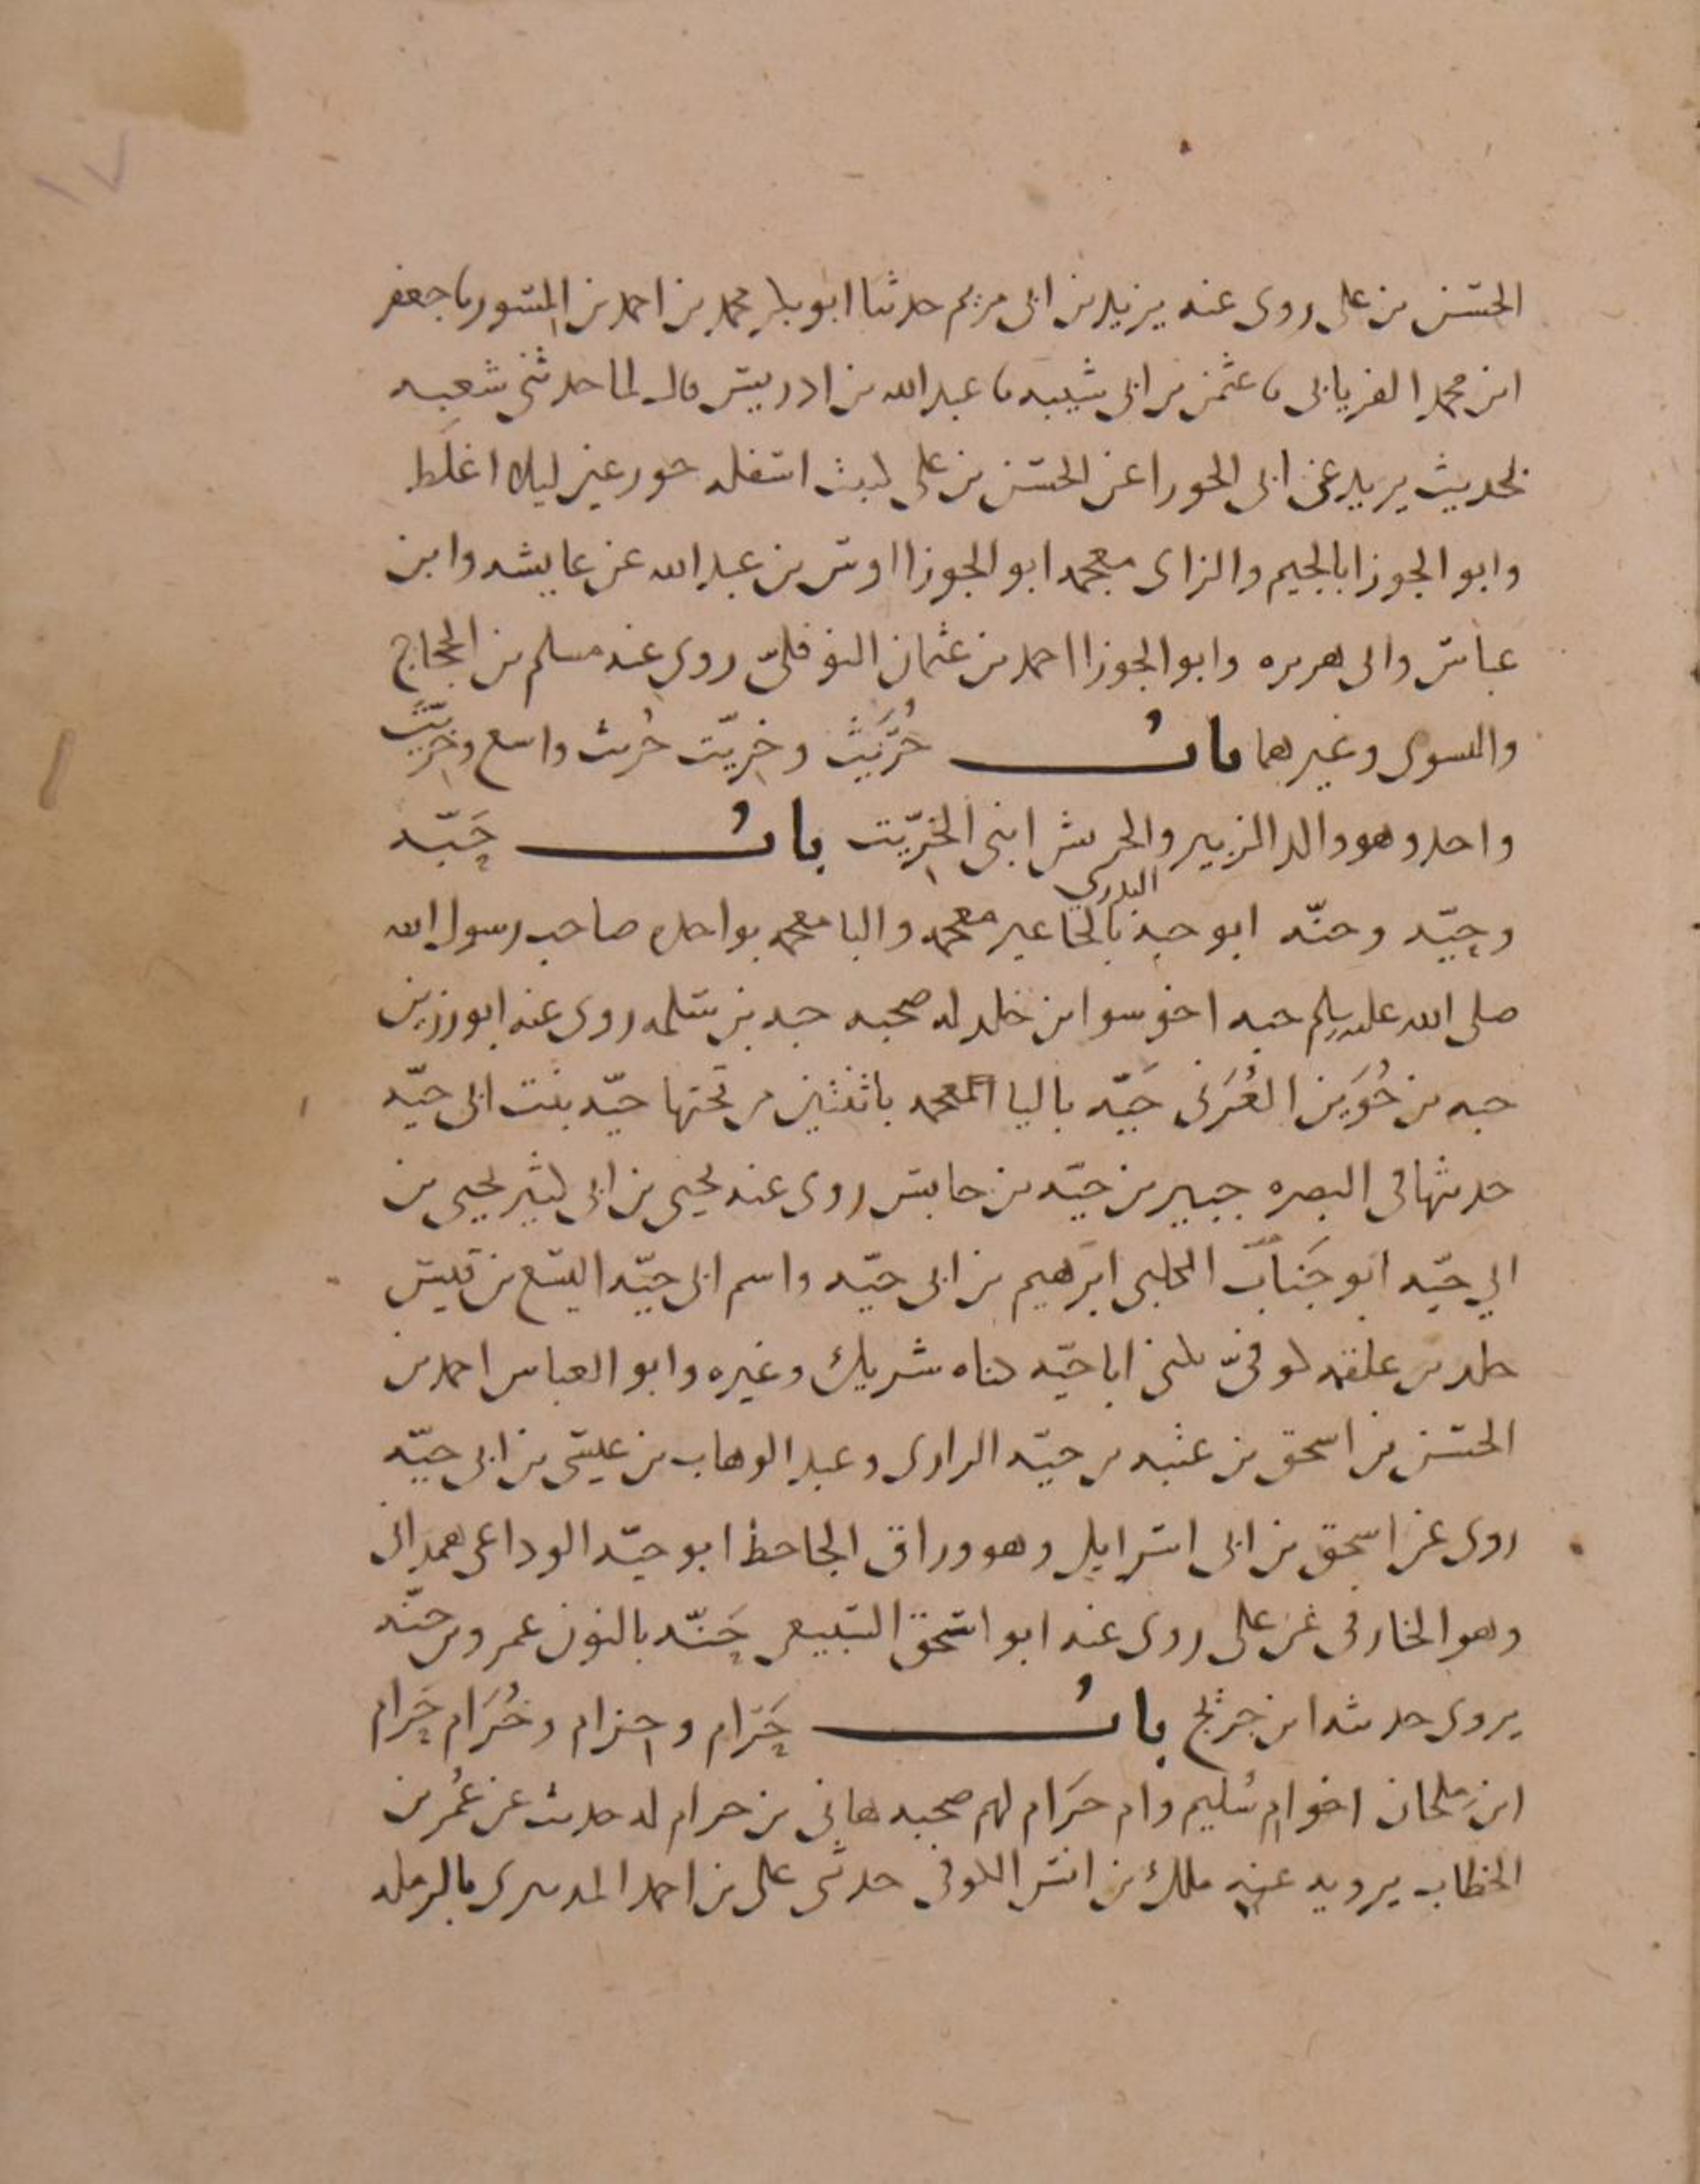 ١٧
الحسن بن على روى عنه يزيد بن ابى مريم حدثنا ابو بكر محمد بن احمد بن المسور نا جعفر
ابن محمد الفريابى نا عثمن بن ابى شيبه نا عبد الله بن ادريس قال لما حدثنى شعبه
بحديث بريد عن ابى الحورا عن الحسن بن على كتبت اسفله حور عين ليلا اغلط
وابو الجوزا بالجيم والزاى معجمه ابو الجوزا اوس بن عبد الله عن عايشه وابن
عباس وابى هريره وابو الجوزا احمد بن عثمان النوفلىّ روى عنه مسلم بن الحجاج
والنسوى وغيرهما باب حُرَيْث وخِرِّيت حُريث واسع وخِرِّيت
واحد وهو والد الزبير والحريش ابنى الخِرِّيت باب حَبَّه
وحيّه وحنّه ابو حبه البدرى بالحا غير معجمه والبا معجمه بواحده صاحب رسول الله
صلى الله عليه وسلم حبه اخو سوا بن خلد له صحبه حبه بن سلمه روى عنه ابو رزين
حبه بن جُوَين العُرَنى حَيّه باليا المعجمه باثنتين من تحتها حيّه بنت ابى حيّه
حديثها فى البصره جبير بن حيّه بن حابس روى عنه يحيى بن ابى كثير يحيى بن
ابي حيّه ابو جَنَاب الكلبى ابرهيم بن ابى حيّه واسم ابى حيّه اليسع بن قيس
خلد بن علقمه كوفىّ يكنى ابا حيّه كناه شريك وغيره وابو العباس احمد بن
الحسن بن اسحق بن عتبه بن حيّه الرازى وعبد الوهاب بن عيسى بن ابى حيّه
روى عن اسحق بن ابى اسرايل وهو وراق الجاحظ ابو حيّه الوداعى همدانى
وهو الخارفى عن على روى عنه ابو اسحق السبيعى حَنّه بالنون عمرو بن حنّه
يروى حديثه ابن جريج باب حَرَام وحِزام وخُرَام حَرام
ابن ملحان اخو ام سُليم وام حَرَام لهم صحبه هانى بن حرام له حديث عن عُمر بن
الخطاب يرويه عنه ملك بن انس الكوفى حدثنى على بن احمد بالرمله